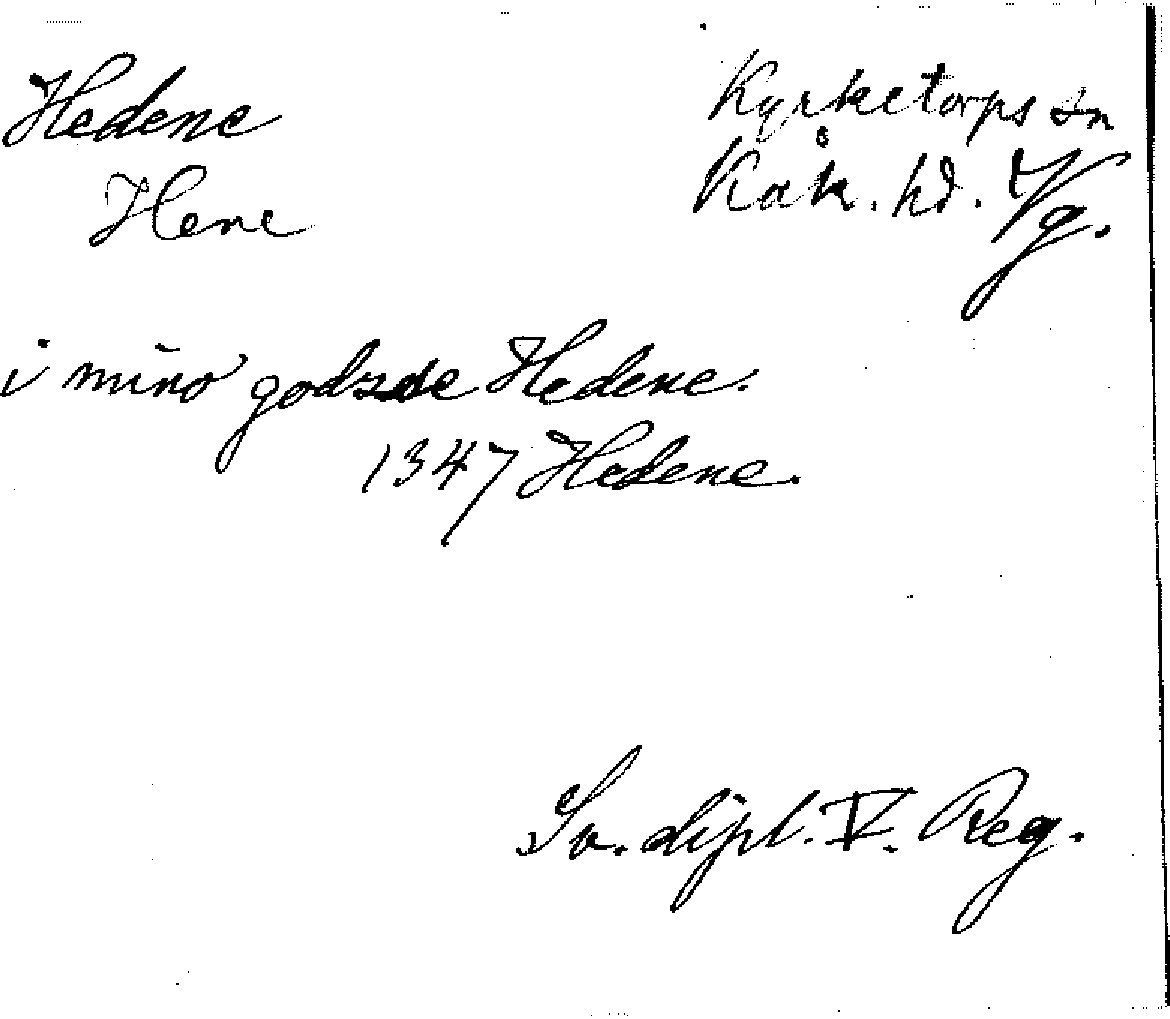 Hedene
Kyrketorps sn
Hene
Kåk. hd. Vg.
i mino godzde Hedene.
1347 Hedene.
Sv. dipl. V. Reg.